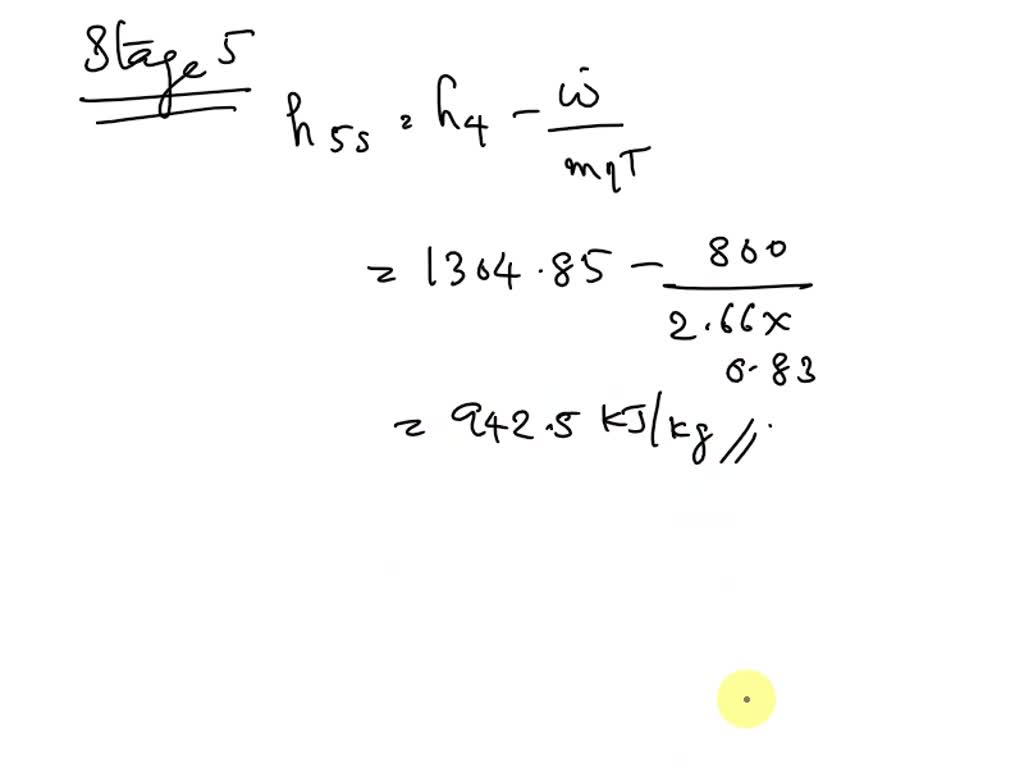 Stage 5
h5s = h4 - ẇ / mηT
= 1304.85 - 800 / 2.66 x 0.83
= 942.5 KJ/kg //